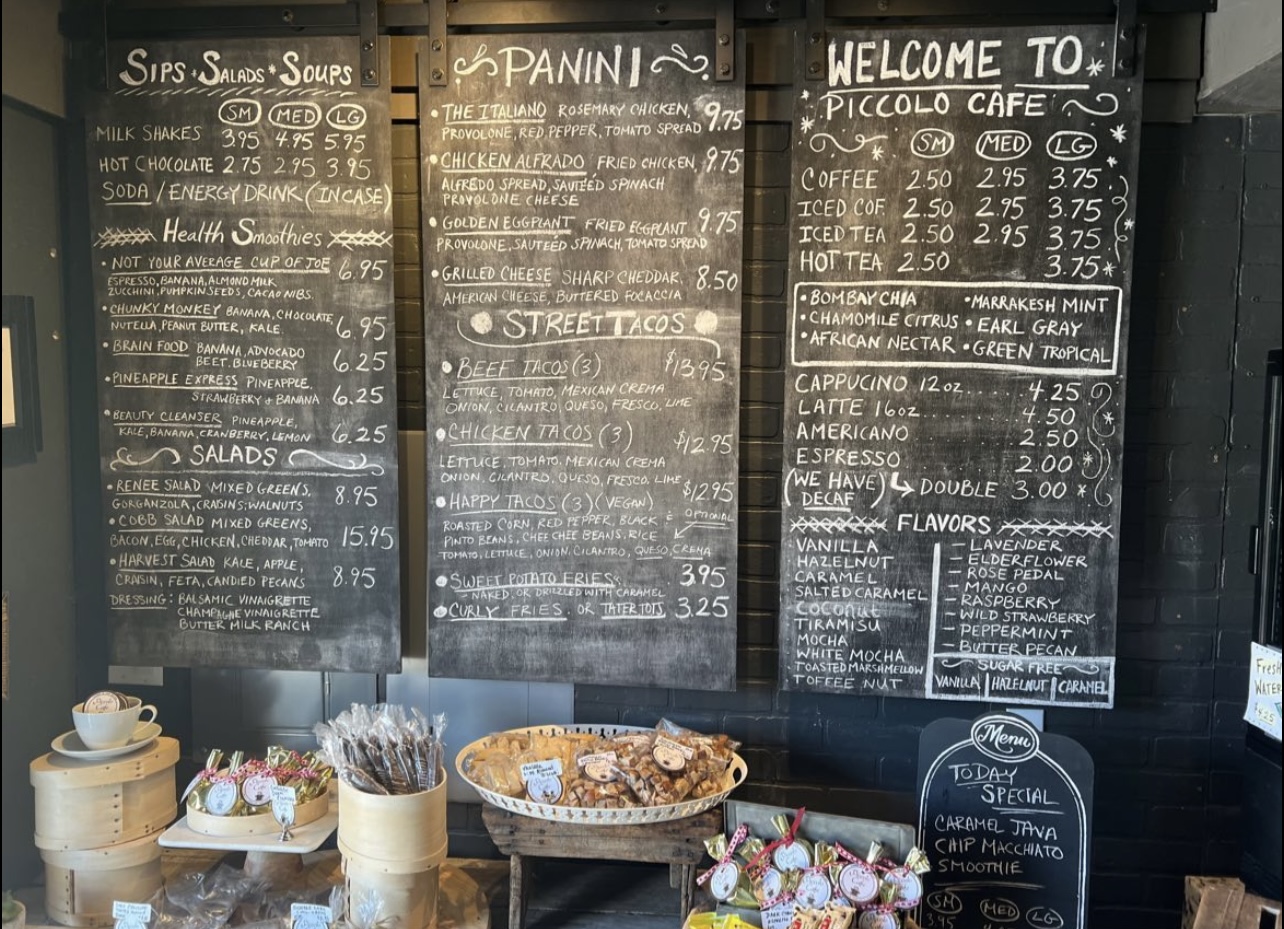 SIPS * SALADS * SOUPS
SM MED LG
MILK SHAKES 3.95 4.95 5.95
HOT CHOCOLATE 2.75 2.95 3.95
SODA / ENERGY DRINK (IN CASE)
Health Smoothies
• NOT YOUR AVERAGE CUP OF JOE 6.95
ESPRESSO, BANANA, ALMOND MILK
ZUCCHINI, PUMPKIN SEEDS, CACAO NIBS.
• CHUNKY MONKEY BANANA, CHOCOLATE,
NUTELLA, PEANUT BUTTER, KALE. 6.95
• BRAIN FOOD BANANA, ADVOCADO
BEET, BLUEBERRY 6.25
• PINEAPPLE EXPRESS PINEAPPLE,
STRAWBERRY + BANANA 6.25
• BEAUTY CLEANSER PINEAPPLE,
KALE, BANANA, CRANBERRY, LEMON 6.25
SALADS
• RENEE SALAD MIXED GREENS,
GORGANZOLA, CRAISINS, WALNUTS 8.95
• COBB SALAD MIXED GREENS,
BACON, EGG, CHICKEN, CHEDDAR, TOMATO 15.95
• HARVEST SALAD KALE, APPLE,
CRAISIN, FETA, CANDIED PECANS 8.95
DRESSING: BALSAMIC VINAIGRETTE
CHAMPAGNE VINAIGRETTE
BUTTER MILK RANCH
PANINI
• THE ITALIANO ROSEMARY CHICKEN, 9.75
PROVOLONE, RED PEPPER, TOMATO SPREAD
• CHICKEN ALFRADO FRIED CHICKEN, 9.75
ALFREDO SPREAD, SAUTEÉD SPINACH
PROVOLONE CHEESE
• GOLDEN EGGPLANT FRIED EGGPLANT 9.75
PROVOLONE, SAUTEED SPINACH, TOMATO SPREAD
• GRILLED CHEESE SHARP CHEDDAR, 8.50
AMERICAN CHEESE, BUTTERED FOCACCIA
STREET TACOS
• BEEF TACOS (3) $13.95
LETTUCE, TOMATO, MEXICAN CREMA
ONION, CILANTRO, QUESO, FRESCO, LIME
• CHICKEN TACOS (3) $12.95
LETTUCE, TOMATO, MEXICAN CREMA
ONION, CILANTRO, QUESO, FRESCO, LIME
• HAPPY TACOS (3) (VEGAN) $12.95
ROASTED CORN, RED PEPPER, BLACK & OPTIONAL
PINTO BEANS, CHEE CHEE BEANS, RICE
TOMATO, LETTUCE, ONION, CILANTRO, QUESO, CREMA
• SWEET POTATO FRIES 3.95
- NAKED OR DRIZZLED WITH CARAMEL
• CURLY FRIES OR TATER TOTS 3.25
WELCOME TO
PICCOLO CAFE
SM MED LG
COFFEE 2.50 2.95 3.75
ICED COF. 2.50 2.95 3.75
ICED TEA 2.50 2.95 3.75
HOT TEA 2.50 3.75
• BOMBAY CHIA • MARRAKESH MINT
• CHAMOMILE CITRUS • EARL GRAY
• AFRICAN NECTAR • GREEN TROPICAL
CAPPUCINO 12oz 4.25
LATTE 16oz 4.50
AMERICANO 2.50
ESPRESSO 2.00
(WE HAVE DECAF) DOUBLE 3.00
FLAVORS
VANILLA – LAVENDER
HAZELNUT – ELDERFLOWER
CARAMEL – ROSE PEDAL
SALTED CARAMEL – MANGO
COCONUT – RASPBERRY
TIRAMISU – WILD STRAWBERRY
MOCHA – PEPPERMINT
WHITE MOCHA – BUTTER PECAN
TOASTED MARSHMELLOW SUGAR FREE
TOFFEE NUT VANILLA | HAZELNUT | CARAMEL
Menu
TODAY
SPECIAL
CARAMEL JAVA
CHIP MACCHIATO
SMOOTHIE
SM MED LG
3.95
Fresh
WATER